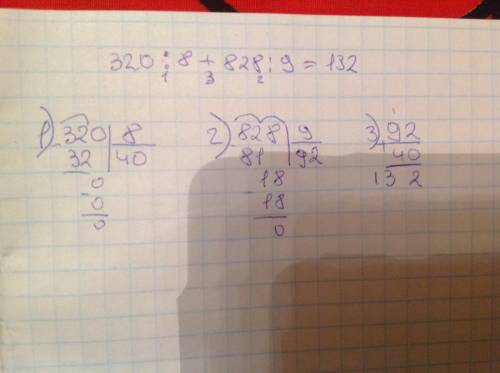 320 : 8 + 828 : 9 = 132
1 3 2
1) 320 | 8
32 | 40
0
0
0
2) 828 | 9
81 | 92
18
18
0
3) 92
+ 40
132